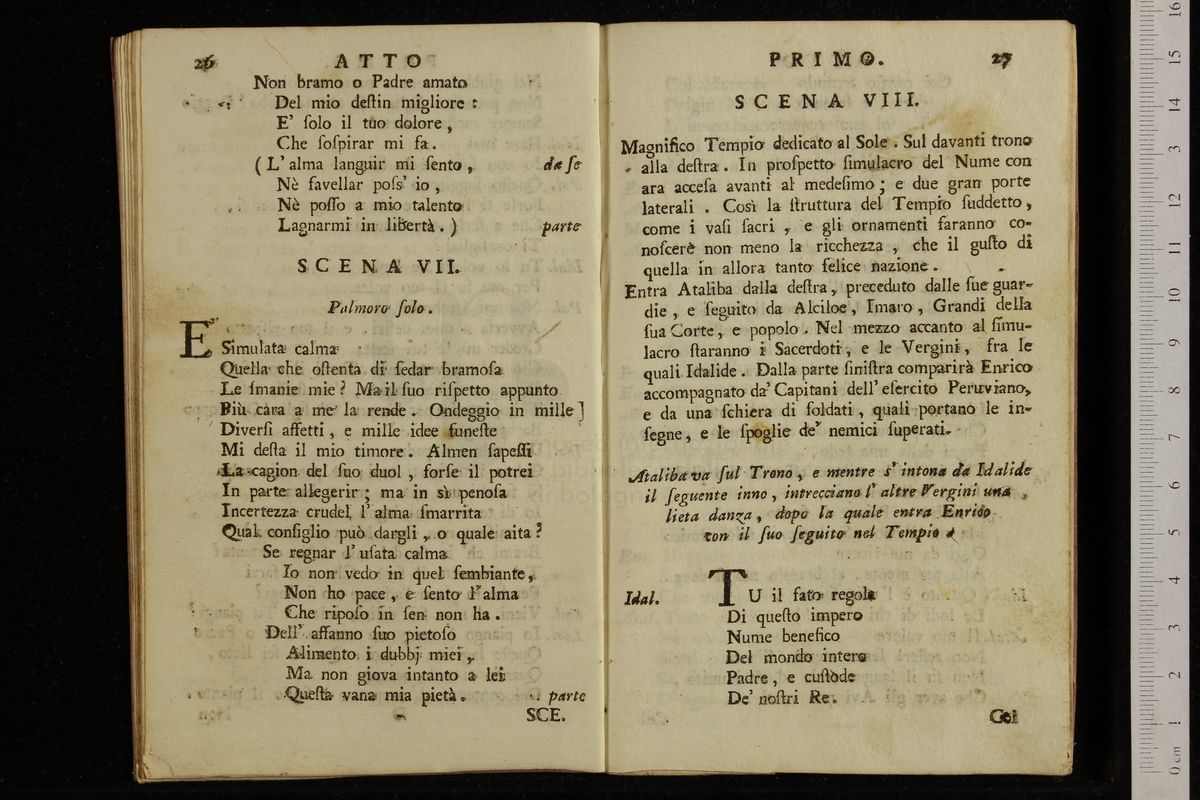 26 ATTO
Non bramo o Padre amato
Del mio deſtin migliore :
E' ſolo il tuo dolore ,
Che ſoſpirar mi fa .
( L' alma languir mi ſento , da ſe
Nè favellar poſs' io ,
Nè poſſo a mio talento
Lagnarmi in libertà . ) parte
SCENA VII.
Palmoro ſolo .
E Simulata calma
Quella che oſtenta di ſedar bramoſa
Le ſmanie mie ? Ma il ſuo riſpetto appunto
Più cara a me la rende . Ondeggio in mille ]
Diverſi affetti , e mille idee funeſte
Mi deſta il mio timore . Almen ſapeſſi
La cagion del ſuo duol , forſe il potrei
In parte allegerir ; ma in sì penoſa
Incertezza crudel l' alma ſmarrita
Qual conſiglio può dargli , o quale aita ?
Se regnar l' uſata calma
Io non vedo in quel ſembiante ,
Non ho pace , e ſento l' alma
Che ripoſo in ſen non ha .
Dell' affanno ſuo pietoſo
Alimento i dubbj miei ,
Ma non giova intanto a lei
Queſta vana mia pietà . parte
SCE.
PRIMO. 27
SCENA VIII.
Magnifico Tempio dedicato al Sole . Sul davanti trono
alla deſtra . In proſpetto ſimulacro del Nume con
ara acceſa avanti al medeſimo ; e due gran porte
laterali . Così la ſtruttura del Tempio ſuddetto ,
come i vaſi ſacri , e gli ornamenti faranno co-
noſcerè non meno la ricchezza , che il guſto di
quella in allora tanto felice nazione .
Entra Ataliba dalla deſtra , preceduto dalle ſue guar-
die , e ſeguito da Alciloe , Imaro , Grandi della
ſua Corte , e popolo . Nel mezzo accanto al ſimu-
lacro ſtaranno i Sacerdoti , e le Vergini , fra le
quali Idalide . Dalla parte ſiniſtra comparirà Enrico
accompagnato da' Capitani dell' eſercito Peruviano ,
e da una ſchiera di ſoldati , quali portano le in-
ſegne , e le ſpoglie de' nemici ſuperati .
Ataliba va ſul Trono , e mentre s' intona da Idalide
il ſeguente inno , intrecciano l' altre Vergini una
lieta danza , dopo la quale entra Enrico
con il ſuo ſeguito nel Tempio .
Idal. TU il fato regola
Di queſto impero
Nume benefico
Del mondo intero
Padre , e cuſtòde
De' noſtri Re .
Col